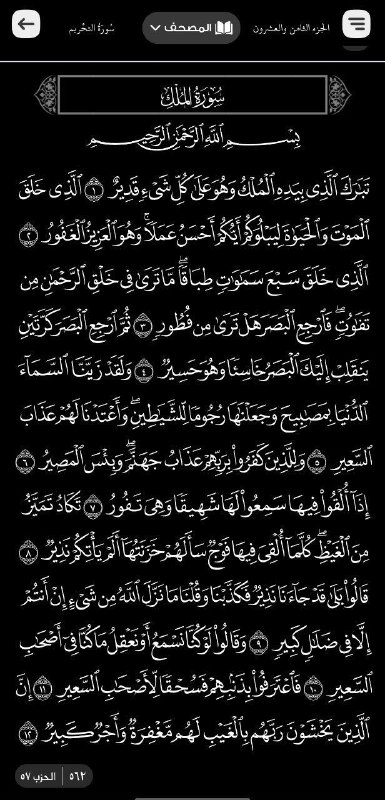 الجزء الثامن والعشرون
المصحف
سورة التحريم
سُورَةُ المُلْكِ
بِسْمِ ٱللَّهِ ٱلرَّحْمَٰنِ ٱلرَّحِيمِ
تَبَٰرَكَ ٱلَّذِى بِيَدِهِ ٱلْمُلْكُ وَهُوَ عَلَىٰ كُلِّ شَىْءٍ قَدِيرٌ ١ ٱلَّذِى خَلَقَ
ٱلْمَوْتَ وَٱلْحَيَوٰةَ لِيَبْلُوَكُمْ أَيُّكُمْ أَحْسَنُ عَمَلًا ۚ وَهُوَ ٱلْعَزِيزُ ٱلْغَفُورُ ٢
ٱلَّذِى خَلَقَ سَبْعَ سَمَٰوَٰتٍ طِبَاقًا ۖ مَّا تَرَىٰ فِى خَلْقِ ٱلرَّحْمَٰنِ مِن
تَفَٰوُتٍ ۖ فَٱرْجِعِ ٱلْبَصَرَ هَلْ تَرَىٰ مِن فُطُورٍ ٣ ثُمَّ ٱرْجِعِ ٱلْبَصَرَ كَرَّتَيْنِ
يَنقَلِبْ إِلَيْكَ ٱلْبَصَرُ خَاسِئًا وَهُوَ حَسِيرٌ ٤ وَلَقَدْ زَيَّنَّا ٱلسَّمَآءَ
ٱلدُّنْيَا بِمَصَٰبِيحَ وَجَعَلْنَٰهَا رُجُومًا لِّلشَّيَٰطِينِ ۖ وَأَعْتَدْنَا لَهُمْ عَذَابَ
ٱلسَّعِيرِ ٥ وَلِلَّذِينَ كَفَرُوا۟ بِرَبِّهِمْ عَذَابُ جَهَنَّمَ ۖ وَبِئْسَ ٱلْمَصِيرُ ٦
إِذَآ أُلْقُوا۟ فِيهَا سَمِعُوا۟ لَهَا شَهِيقًا وَهِىَ تَفُورُ ٧ تَكَادُ تَمَيَّزُ
مِنَ ٱلْغَيْظِ ۖ كُلَّمَآ أُلْقِىَ فِيهَا فَوْجٌ سَأَلَهُمْ خَزَنَتُهَآ أَلَمْ يَأْتِكُمْ نَذِيرٌ ٨
قَالُوا۟ بَلَىٰ قَدْ جَآءَنَا نَذِيرٌ فَكَذَّبْنَا وَقُلْنَا مَا نَزَّلَ ٱللَّهُ مِن شَىْءٍ إِنْ أَنتُمْ
إِلَّا فِى ضَلَٰلٍ كَبِيرٍ ٩ وَقَالُوا۟ لَوْ كُنَّا نَسْمَعُ أَوْ نَعْقِلُ مَا كُنَّا فِىٓ أَصْحَٰبِ
ٱلسَّعِيرِ ١٠ فَٱعْتَرَفُوا۟ بِذَنۢبِهِمْ فَسُحْقًا لِّأَصْحَٰبِ ٱلسَّعِيرِ ١١ إِنَّ
ٱلَّذِينَ يَخْشَوْنَ رَبَّهُم بِٱلْغَيْبِ لَهُم مَّغْفِرَةٌ وَأَجْرٌ كَبِيرٌ ١٢
٥٦٢ الحزب ٥٧